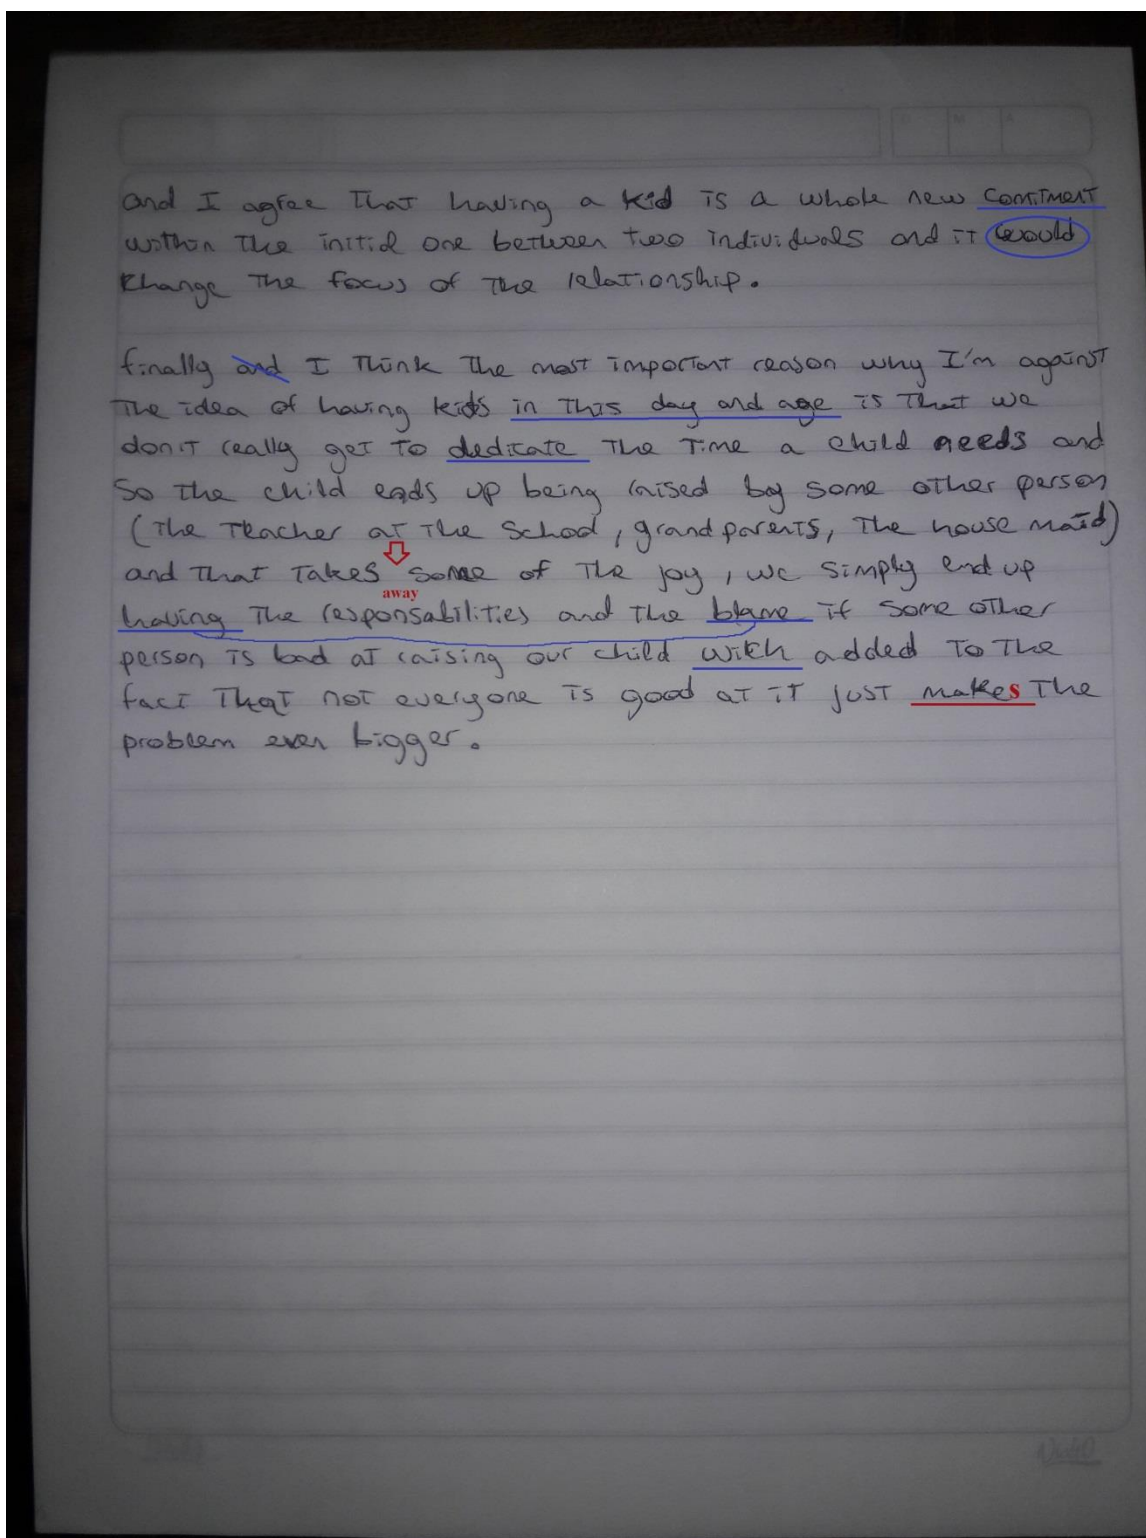 and I agree that having a kid is a whole new comitment
within the initial one between two individuals and it would
change the focus of the relationship.
finally and I think the most important reason why I'm against
the idea of having kids in this day and age is that we
don't really get to dedicate the time a child needs and
so the child ends up being raised by some other person
(the teacher at the school, grandparents, the house maid)
and that takes some of the joy, we simply end up
away
having the responsabilities and the blame if some other
person is bad at raising our child with added to the
fact that not everyone is good at it just makes the
problem even bigger.